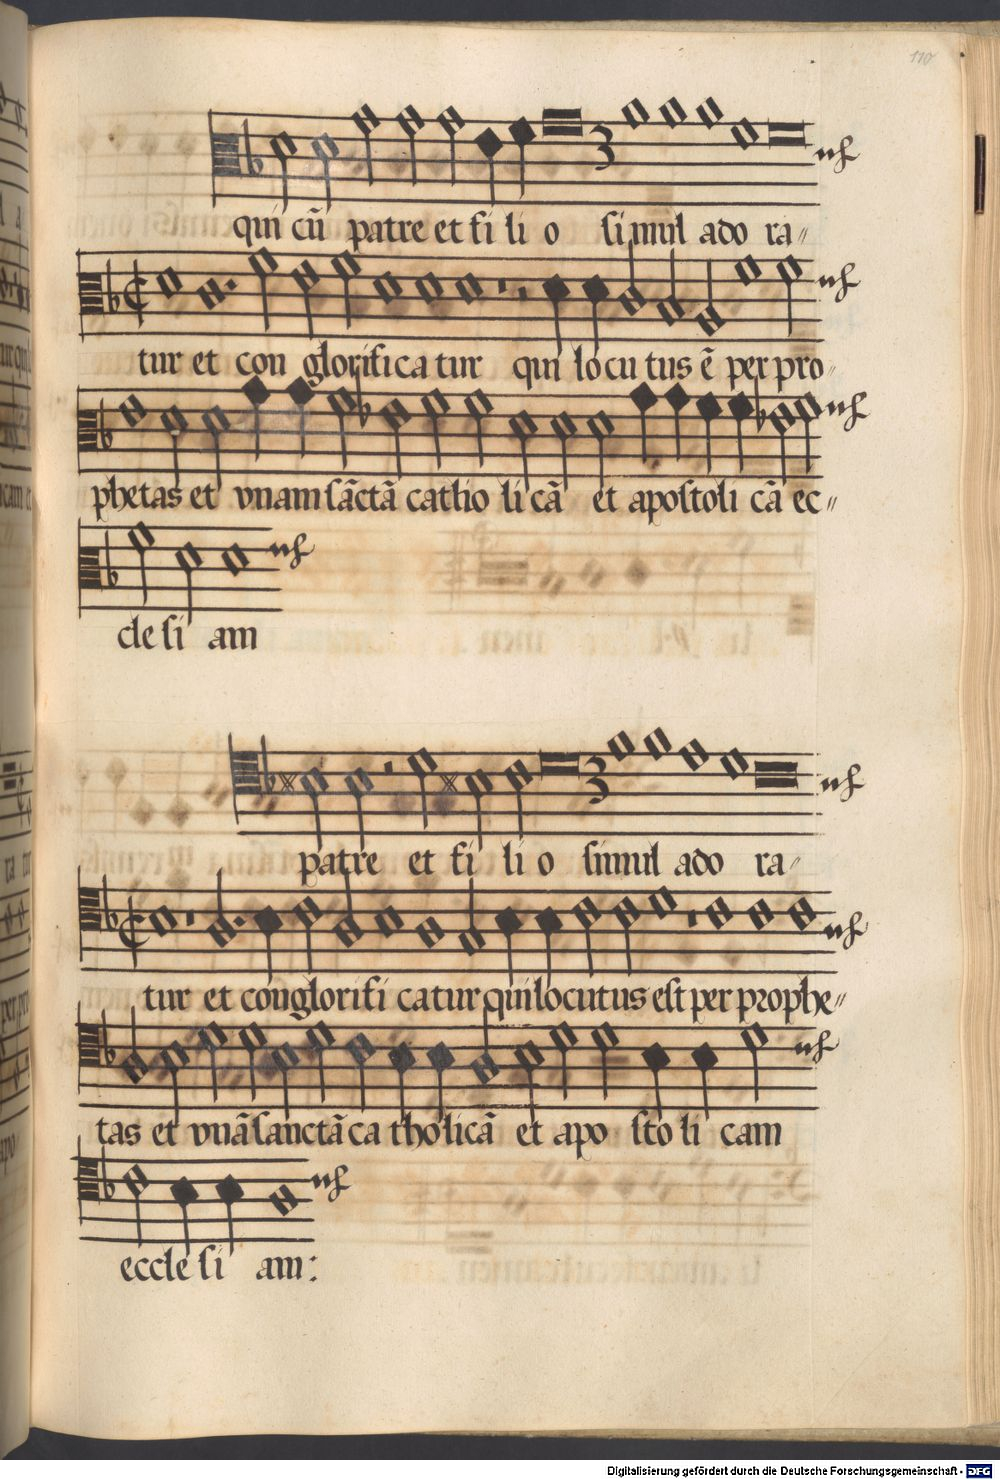 110
3
qui cū patre et fi li o simul ado ra〃
tur et con glorifica tur qui locu tus ē per pro〃
phetas et vnam sāctā catho li cā et apostoli cā ec〃
cle si am
3
patre et fi li o simul ado ra〃
tur et conglorifi catur qui locutus est per prophe〃
tas et vnā sanctā ca tholicā et apo sto li cam
eccle si am:
Digitalisierung gefördert durch die Deutsche Forschungsgemeinschaft - DFG